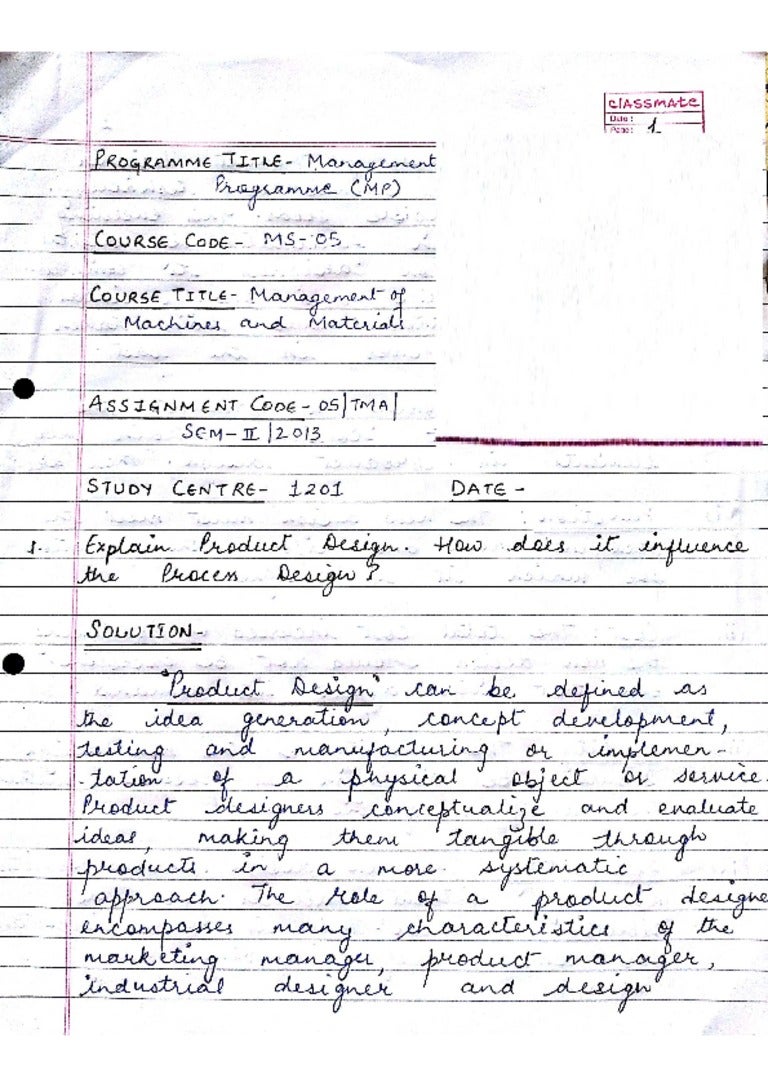 classmate
Date :
Page : 1
PROGRAMME TITLE- Management
Programme (MP)
COURSE CODE- MS-05
COURSE TITLE- Management of
Machines and Materials
ASSIGNMENT CODE- 05/TMA/
SEM-II/2013
STUDY CENTRE- 1201 DATE -
1. Explain Product Design. How does it influence
the Process Design?
SOLUTION-
"Product Design" can be defined as
the idea generation, concept development,
testing and manufacturing or implemen-
-tation of a physical object or service.
Product designers conceptualize and evaluate
ideas, making them tangible through
products in a more systematic
approach. The role of a product designe
encompasses many characteristics of the
marketing manager, product manager,
industrial designer and design